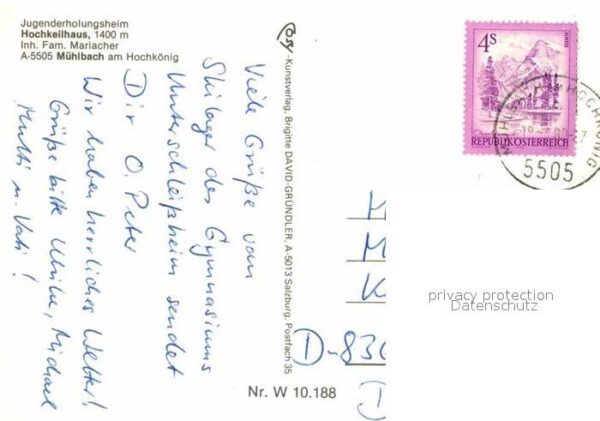 Jugenderholungsheim
Hochkeilhaus, 1400 m
Inh. Fam. Mariacher
A-5505 Mühlbach am Hochkönig
Viele Grüße vom
Skilager des Gymnasiums
Unterschleißheim sendet
Dir O. Peter
Wir haben herrliches Wetter!
Grüße bitte Ulrike, Michael
Mutti u. Vati!
-Kunstverlag, Brigitte DAVID-GRÜNDLER, A-5013 Salzburg, Postfach 35
Nr. W 10.188
4S
REPUBLIK ÖSTERREICH
MÜHLBACH AM HOCHKÖNIG
5505
D-830
D
privacy protection
Datenschutz